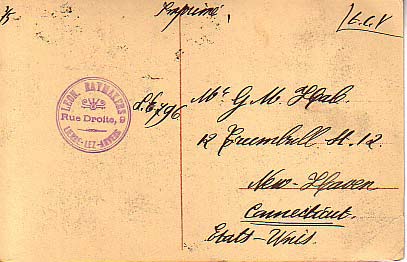 Imprimé
L.C.V
LEON RAYMAKERS 9
Rue Droite,
LIERRE-LEZ-ANVERS
Mr G.M. Hab.
12 Trumbull St. 12.
New-Haven
Connecticut.
Etats-Unis.